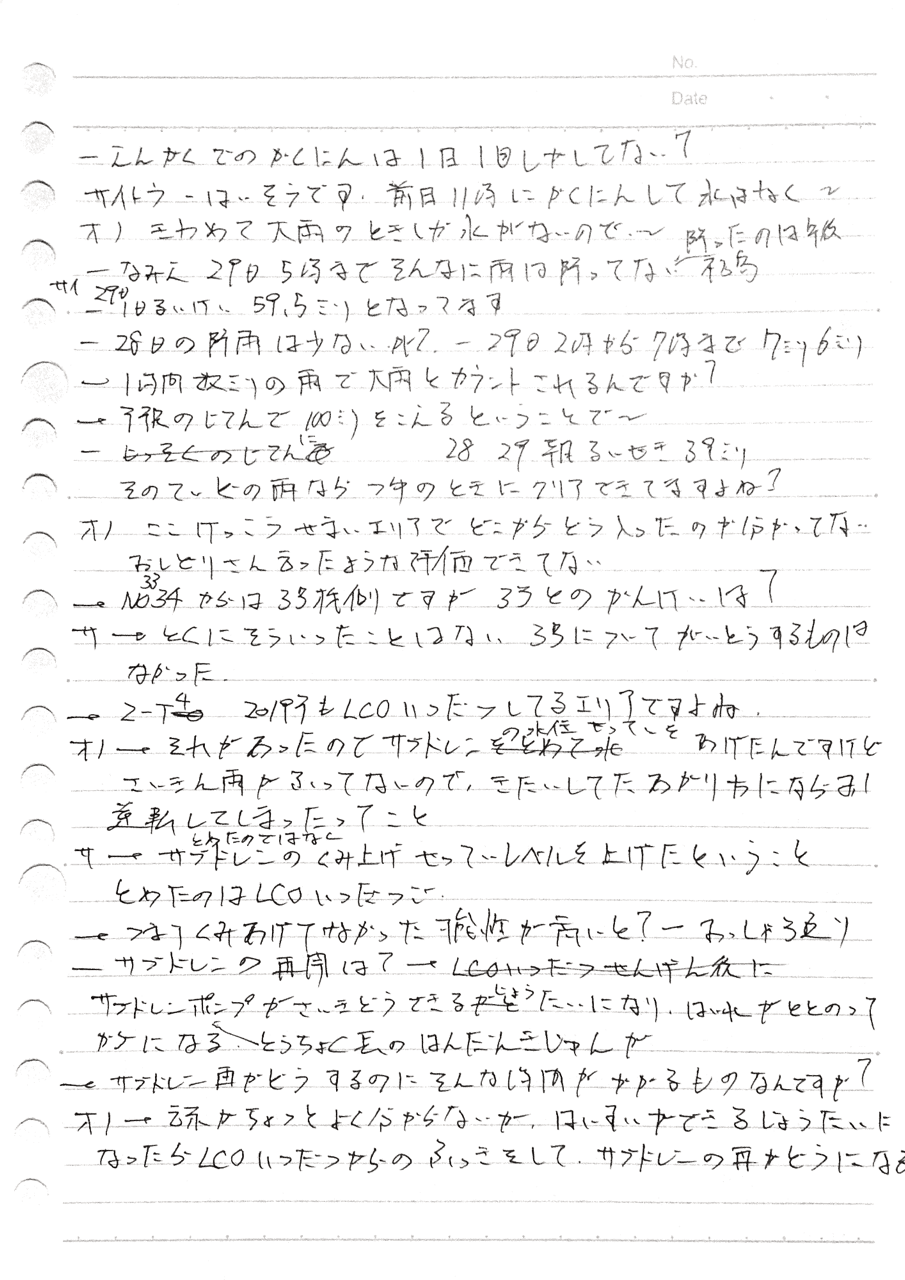 No.
Date
- えんかくでのかくにんは1日1回しかしてない?
サイトウ - はい、そうです. 前日11時にかくにんして水はなく～
オノ きわめて大雨のときしか水がないので、～ 降ったのは午後
- なみえ 29日5時まで そんなに雨は降ってない 福島
サイ - 29日 1日るいけい 59.5ミリとなってます
- 28日の降雨は少ない が?. - 29日2時から7時まで 7ミリ6ミリ
- 1時間数ミリの雨で大雨とカウントされるんですか?
→ 予報のじてんで 100ミリをこえるということで～
- じっそくのじてんに 28 29 朝るいせき 39ミリ
そのていどの雨なら つゆのときにクリアできてますよね?
オノ ここけっこうせまいエリアでどこからどう入ったのか分かってない
おしどりさん言ったような評価できてない
→ No33 34からは3号機側ですが 3号とのかんけいは?
サ → とくにそういったことはない 3号についてがいとうするものは
なかった.
→ 2-T4 2019年もLCOいつだつしてるエリアですよね.
オノ → それがあったのでサブドレンの水位せっていを あげたんですけど
さいきん雨がふってないので、きたいしてたあがり方にならず
逆転してしまったってこと
とめたのではなく
サ → サブドレンのくみ上げせっていレベルを上げたということ
とめたのはLCOいつだつご.
→ つまりくみあげてなかった可能性が高いと? - おっしゃる通り
- サブドレンの再開は? → LCOいつだつせんげん後に
サブドレンポンプがさいきどうできるじょうたいになり、はいれがととのって
からになる. とうちょく長のはんだんきじゅんが
→ サブドレン再かどうするのにそんな時間がかかるものなんですか?
オノ → 言葉がちょっとよく分からないが、はいすいができるじょうたいに
なったらLCOいつだつからのふっきをして、サブドレンの再かどうになる